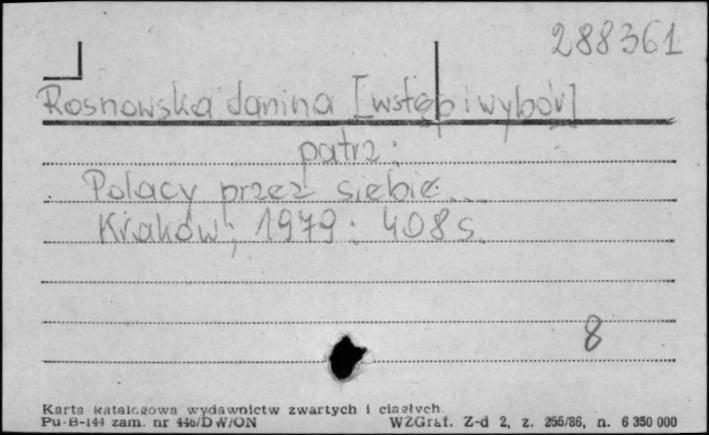 288361
Rosnowska Janina [wstęp i wybór]
patrz:
Polacy przez siebie...
Kraków, 1979. 408 s.
8
Karta katalogowa wydawnictw zwartych i ciągłych.
Pu-B-144 zam. nr 446/DW/ON WZGraf. Z-d 2, z. 255/86, n. 6 350 000